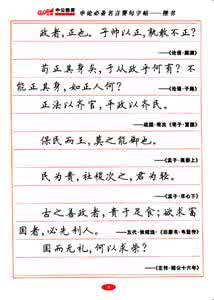 中公教育
申论必备名言警句字帖——楷书
政者,正也。子帅以正,孰敢不正?
——《论语·颜渊》
苟正其身矣,于从政乎何有?不
能正其身,如正人何?
——《论语·子路》
正法以齐官,平政以齐民。
——战国·荀况《荀子·富国》
保民而王,莫之能御也。
——《孟子·梁惠王上》
民为贵,社稷次之,君为轻。
——《孟子·尽心下》
古之善政者,贵于足食;欲求富
国者,必先利人。
——五代·张昭远
《旧唐书·韦坚传》
国而无礼,何以求荣?
——《左传·昭公十六年》